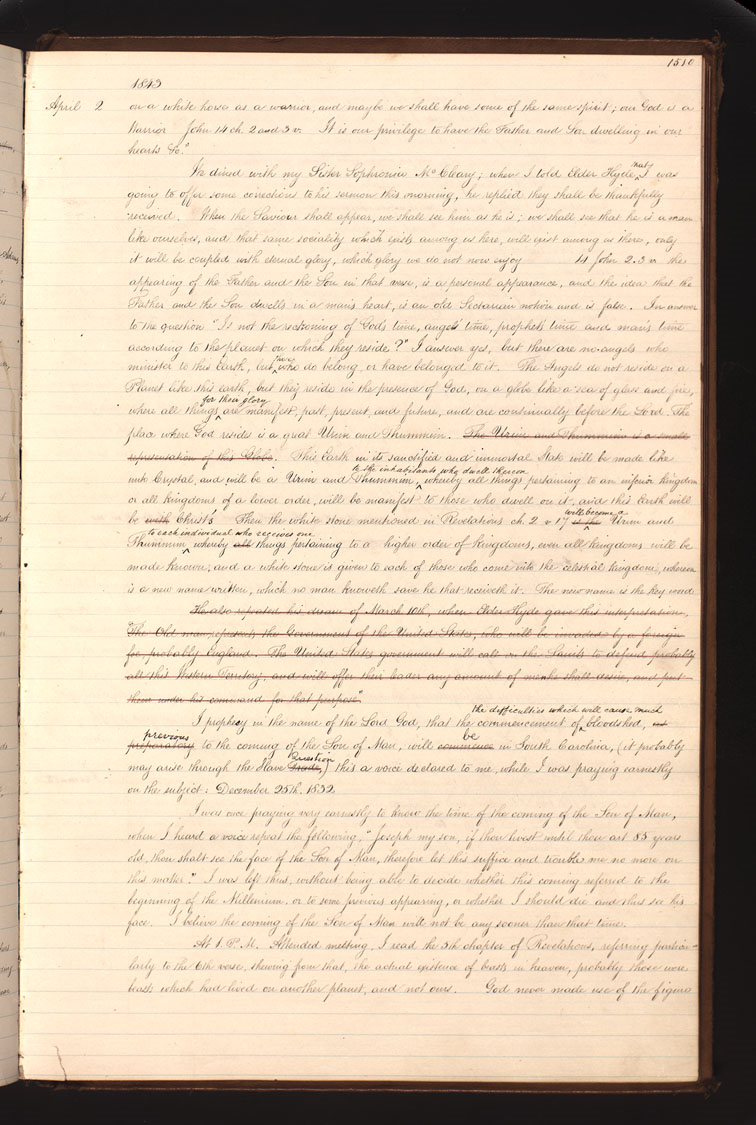 1510
1843
April 2 on a white horse as a warrior, and maybe we shall have some of the same spirit; our God is a
Warrior John 14 ch. 2 and 3 v. It is our privilege to have the Father and Son dwelling in our
hearts &c."
We dined with my Sister Sophronia McCleary; when I told Elder Hyde, that I was
going to offer some corrections to his sermon this morning, he replied they shall be thankfully
received. When the Saviour shall appear, we shall see him as he is; we shall see that he is a man
like ourselves, and that same sociality which exists among us here, will exist among us there, only
it will be coupled with eternal glory, which glory we do not now enjoy 14 John 2.3 v the
appearing of the Father and the Son in that verse, is a personal appearance, and the idea that the
Father and the Son dwells in a man's heart, is an old Sectarian notion and is false. In answer
to the question "Is not the reckoning of God's time, angels' time, prophets time and man's time
according to the planet on which they reside?" I answer yes, but there are no angels who
minister to this Earth, but those who do belong, or have belonged to it. The Angels do not reside on a
Planet like this earth, but they reside in the presence of God, on a globe like a sea of glass and fire,
for their glory
where all things are manifest, past, present, and future, and are continually before the Lord. The
place where God resides is a great Urim and Thummim. The Urim and Thummim is a small
representation of this Globe. This Earth in its sanctified and immortal State will be made like
to the inhabitants who dwell thereon
unto Crystal, and will be a Urim and Thummim, whereby all things pertaining to an inferior Kingdom
or all kingdoms of a lower order, will be manifest to those who dwell on it, and this Earth will
will become a
be with Christ's Then the white stone mentioned in Revelations ch. 2 v 17 is the Urim and
to each individual who receives one
Thummim whereby all things pertaining to a higher order of kingdoms, even all kingdoms will be
made known; and a white stone is given to each of those who come into the celestial kingdom, whereon
is a new name written, which no man knoweth save he that receiveth it. The new name is the key word
He also repeated his dream of March 10th, when Elder Hyde gave this interpretation,
"The Old man represents the Government of the United States, who will be invaded by a foreign
foe, probably England. The United States government will call on the Saints to defend probably
all this Western Territory, and will offer their leader any amount of men he shall desire, and put
them under his command for that purpose"
the difficulties which will cause much
I prophesy in the name of the Lord God, that the commencement of bloodshed, as
previous be
preparatory to the coming of the Son of Man, will commence in South Carolina, (it probably
Question
may arise through the Slave Trade,) this a voice declared to me, while I was praying earnestly
on the subject: December 25th. 1832.
I was once praying very earnestly to know the time of the coming of the Son of Man,
when I heard a voice repeat the following, "Joseph my son, if thou livest until thou art 85 years
old, thou shalt see the face of the Son of Man, therefore let this suffice and trouble me no more on
this matter." I was left thus, without being able to decide whether this coming referred to the
beginning of the Millenium, or to some previous appearing, or whether I should die and thus see his
face. I believe the coming of the Son of Man will not be any sooner than that time.
At 1. P.M. Attended meeting, I read the 5th chapter of Revelations, referring particu-
larly to the 6th verse, shewing from that, the actual existence of beasts in heaven, probably those were
beasts which had lived on another planet, and not ours. God never made use of the figure